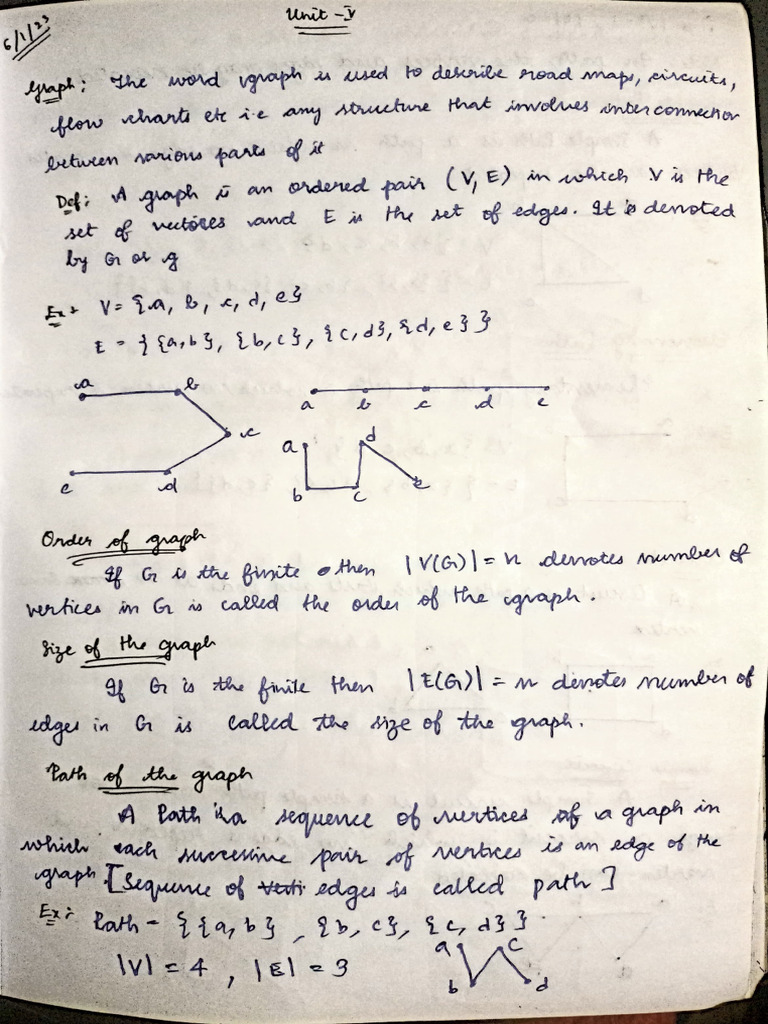 6/1/23
Unit - V
Graph: The word graph is used to describe road maps, circuits,
flow charts etc i.e any structure that involves interconnection
between various parts of it
Def: A graph is an ordered pair (V, E) in which V is the
set of vectices and E is the set of edges. It is denoted
by G or g
Ex: V = {a, b, c, d, e}
E = {{a,b}, {b,c}, {c,d}, {d,e}}
a b
a b c d e
c
a d
e d
b c e
Order of graph
If G is the finite then |V(G)| = n denotes number of
vertices in G is called the order of the graph.
Size of the graph
If G is the finite then |E(G)| = n denotes number of
edges in G is called the size of the graph.
Path of the graph
A Path is a sequence of vertices of a graph in
which each successive pair of vertices is an edge of the
graph. [Sequence of edges is called path]
Ex: Path = {{a, b}, {b, c}, {c, d}}
|V| = 4, |E| = 3
a c
b d